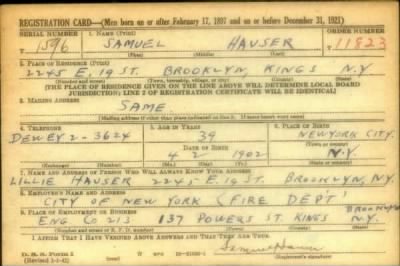 REGISTRATION CARD—(Men born on or after February 17, 1897 and on or before December 31, 1921)
SERIAL NUMBER 1. NAME (Print) ORDER NUMBER
1596 SAMUEL HAUSER 11823
(First) (Middle) (Last)
2. PLACE OF RESIDENCE (Print)
2245 E 19 ST. BROOKLYN, KINGS N.Y.
(Number and street) (Town, township, village, or city) (County) (State)
[THE PLACE OF RESIDENCE GIVEN ON THE LINE ABOVE WILL DETERMINE LOCAL BOARD
JURISDICTION; LINE 2 OF REGISTRATION CERTIFICATE WILL BE IDENTICAL]
3. MAILING ADDRESS
SAME.
[Mailing address if other than place indicated on line 2. If same insert word same]
4. TELEPHONE 5. AGE IN YEARS 6. PLACE OF BIRTH
DEWEY 2-3624 39 NEW YORK CITY
DATE OF BIRTH
4 2 1902 N.Y.
(Exchange) (Number) (Mo.) (Day) (Yr.) (State or country)
7. NAME AND ADDRESS OF PERSON WHO WILL ALWAYS KNOW YOUR ADDRESS
LILLIE HAUSER 2245 E 19 ST BROOKLYN, N.Y.
8. EMPLOYER'S NAME AND ADDRESS
CITY OF NEW YORK (FIRE DEP'T)
9. PLACE OF EMPLOYMENT OR BUSINESS BROOKLYN
ENG CO 213 137 POWERS ST. KINGS N.Y.
(Number and street or R. F. D. number) (Town) (County) (State)
I AFFIRM THAT I HAVE VERIFIED ABOVE ANSWERS AND THAT THEY ARE TRUE.
D. S. S. Form 1
Samuel Hauser
(Registrant's signature)